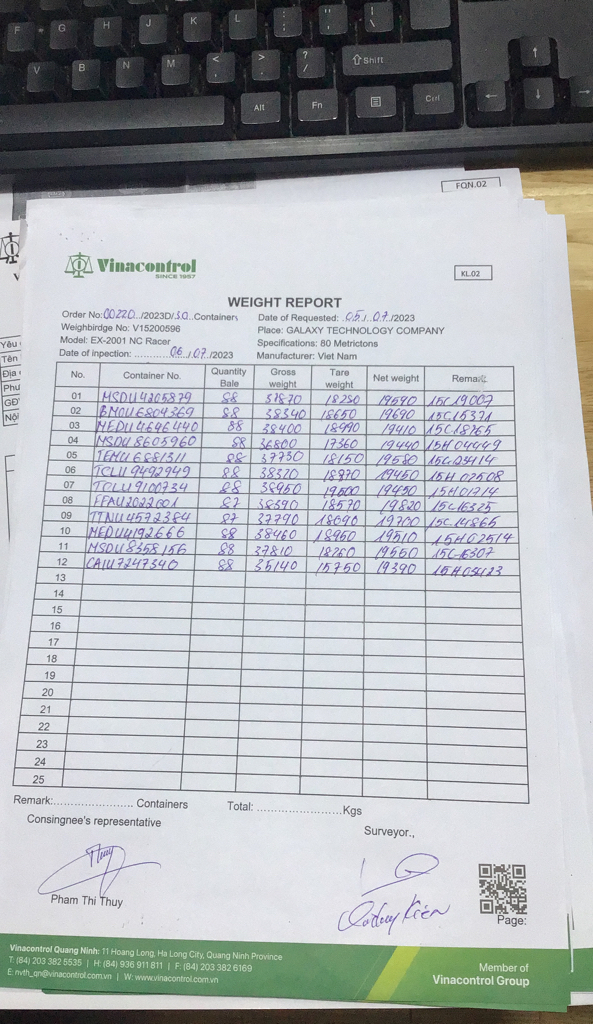 FQN.02
Vinacontrol
SINCE 1957
KL.02
WEIGHT REPORT
Order No:00220../2023D/30.Containers Date of Requested: .05../.07./2023
Weighbirdge No: V15200596 Place: GALAXY TECHNOLOGY COMPANY
Model: EX-2001 NC Racer Specifications: 80 Metrictons
Date of inpection: ............06./.07./2023 Manufacturer: Viet Nam
No. Container No. Quantity Bale Gross weight Tare weight Net weight Remark
01 MSDU4205879 88 37870 18280 19590 15C19007
02 BMOU6804369 88 38340 18650 19690 15C15371
03 MEDU4646440 88 38400 18990 19410 15C18765
04 MSDU8605960 88 36800 17360 19440 15H04449
05 TEMU6881311 88 37730 18150 19580
06 TCLU9492949 88 38320 18870 19450 15H02508
07 TCLU9100734 88 38950 19500 19450 15H01714
08 FFAU2022001 87 38390 18570 19820 15C16325
09 TTNU4572384 87 37790 18090 19700 15C14865
10 MEDU4192666 88 38460 18950 19510 15H02514
11 MSDU8358156 88 37810 18260 19550 15C16307
12 CAIU7247340 88 35140 15750 19390
13
14
15
16
17
18
19
20
21
22
23
24
25
Remark:....................... Containers Total: .........................Kgs
Consingnee's representative
Surveyor.,
Thuy
Pham Thi Thuy
Page:
Vinacontrol Quang Ninh: 11 Hoang Long, Ha Long City, Quang Ninh Province
T: (84) 203 382 5535 | H: (84) 936 911 811 | F: (84) 203 382 6169
E: nvth_qn@vinacontrol.com.vn | W: www.vinacontrol.com.vn
Member of
Vinacontrol Group